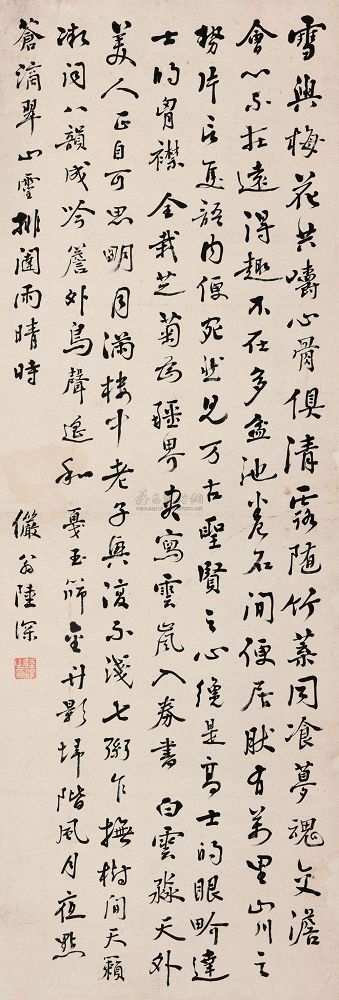 雪與梅花共嚼心骨俱清露随竹葉同飡夢魂交澹
會心不在遠得趣不在多盆池卷石間便居肰有萬里山川之
勢片言隻語内便宛然見万古聖賢之心纔是高士的眼畍達
士的胷襟 全栽芝菊為疆畍 盡寫雲嵐入券書 白雲淼天外
美人正自可思明月滿樓中老子興復不淺七弼乍撫樹間天籟
漸同八韻成吟簷外鳥聲遙和 戞玉篩金竹影埽階風月夜點
蒼滴翠山雪排闥雨晴時
儼翁陸深